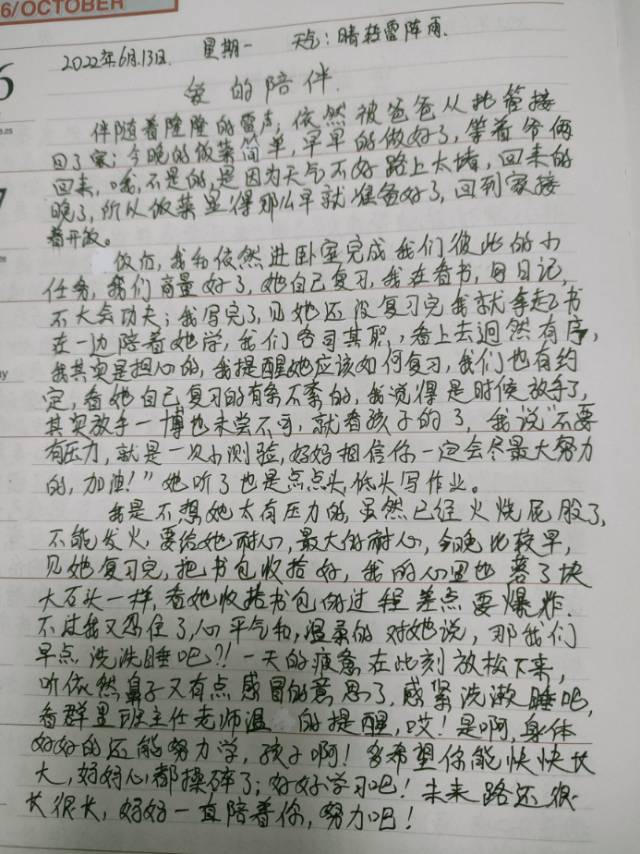 6/OCTOBER
6
2022年6月13日. 星期一 天气:晴转雷阵雨.
爱的陪伴.
伴随着隆隆的雷声,依然被爸爸从托管接
回了家;今晚的饭菜简单,早早的做好了,等着爷俩
回来,哦,不是的,是因为天气不好路上太堵,回来的
晚了,所以饭菜显得那么早就准备好了,回到家接
着开饭。
饭后,我和依然进卧室完成我们彼此的小
任务,我们商量好了,她自己复习,我在看书,写日记,
不大会功夫;我写完了,见她还没复习完我就拿起了书
在一边陪着她学,我们各司其职,看上去迥然有序,
我其实是担心的,我提醒她应该如何复习,我们也有约
定,看她自己复习的有条不紊的,我觉得是时候放手了,
其实放手一博也未尝不可,就看孩子的了,我说“不要
有压力,就是一次小测验,好好相信你一定会尽最大努力
的,加油!”她听了也是点点头,低头写作业。
我是不想她太有压力的,虽然已经火烧屁股了,
不能发火,要给她耐心,最大的耐心,今晚比较早,
见她复习完,把书包收拾好,我的心里也落了块
大石头一样,看她收拾书包的过程差点要爆炸.
不过我又忍住了,心平气和,温柔的对她说,那我们
早点洗洗睡吧?!一天的疲惫在此刻放松下来,
听依然鼻子又有点感冒的意思了,感紧洗漱睡吧,
看群里班主任老师温 的提醒,哎!是啊,身体
好好的还能努力学,孩子啊!多希望你能快快长
大,好好心都操碎了;好好学习吧!未来路还很
长很长,好好一直陪着你,努力吧!